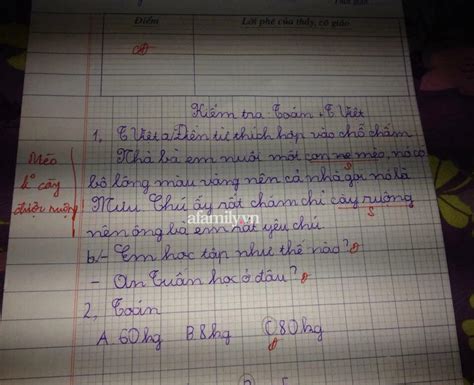 Điểm
Lời phê của thầy, cô giáo
Kiểm tra Toán + T Việt
1, T Việt a/ Điền từ thích hợp vào chỗ chấm
Nhà bà em nuôi một con mẹ mèo, nó có
bộ lông màu vàng nên cả nhà gọi nó là
Mưu Chú ấy rất chăm chỉ cày ruộng
nên ông bà em rất yêu chú
Mèo
k cày
được ruộng
S
S
b/- Em học tập như thế nào?
- An Tuấn học ở đâu?
2, Toán
A 60kg B. 8kg C 80kg
afamily.vn